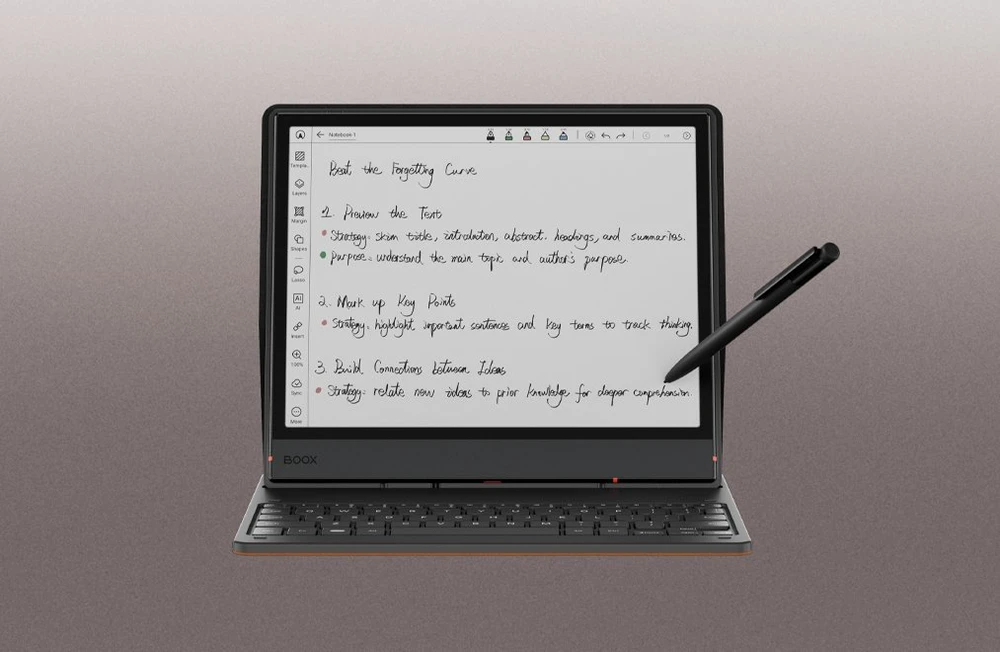 Notebook-1
Beat the Forgetting Curve
Template
Layers
1. Preview the Text
Margin
Strategy: skim title, introduction, abstract, headings, and summaries.
Shapes
Purpose: understand the main topic and author's purpose.
Lasso
2. Mark up Key Points
AI
AI
Strategy: highlight important sentences and key terms to track thinking.
Insert
3. Build Connections between Ideas
Strategy: relate new ideas to prior knowledge for deeper comprehension.
Sync
More
BOOX